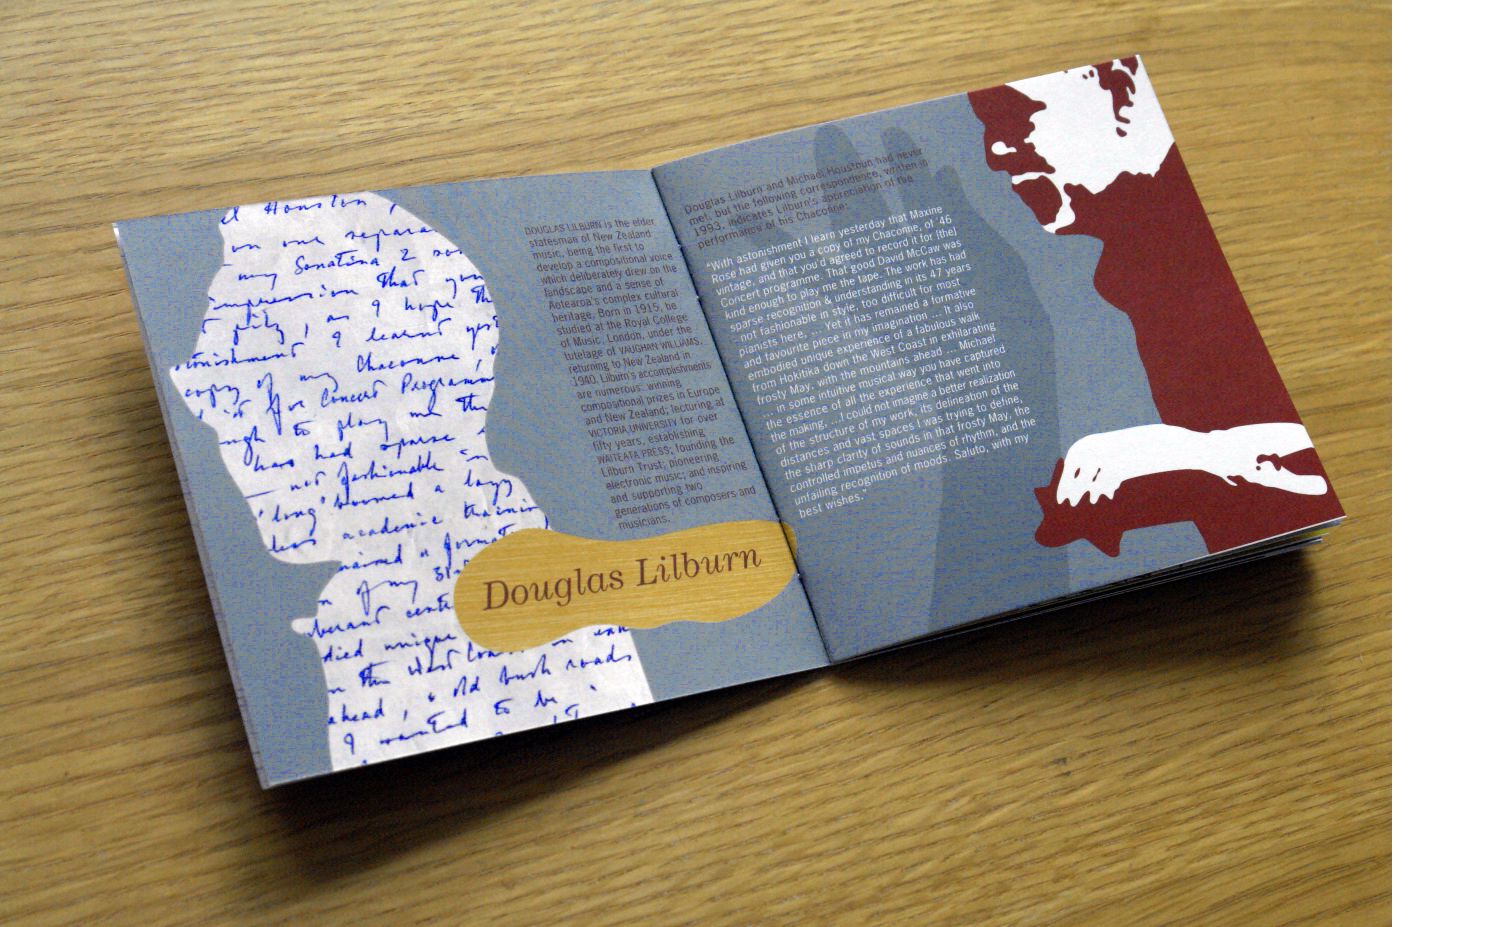 el Houston,
on one separa
my Sonatina 2
impression that you
pity, as I hope th
tonishment I learnt yest
copy of my Chaconne,
it for Concert Programm
ugh to play me the
have had sparse
not fashionable in
'long' boomed a lazy
less academic training
nained a format
n of my
berant cent
died unique
n the West Coast in exh
ahead, & old bush roads
I wanted to be
DOUGLAS LILBURN is the elder
statesman of New Zealand
music, being the first to
develop a compositional voice
which deliberately drew on the
landscape and a sense of
Aotearoa's complex cultural
heritage. Born in 1915, he
studied at the Royal College
of Music, London, under the
tutelage of VAUGHAN WILLIAMS,
returning to New Zealand in
1940. Lilburn's accomplishments
are numerous: winning
compositional prizes in Europe
and New Zealand; lecturing at
VICTORIA UNIVERSITY for over
fifty years, establishing
WAITEATA PRESS; founding the
Lilburn Trust; pioneering
electronic music; and inspiring
and supporting two
generations of composers and
musicians.
Douglas Lilburn
Douglas Lilburn and Michael Houstoun had never
met, but the following correspondence, written in
1993, indicates Lilburn's appreciation of the
performance of his Chaconne:
"With astonishment I learn yesterday that Maxine
Rose had given you a copy of my Chaconne, of '46
vintage, and that you'd agreed to record it for [the]
Concert programme. That good David McCaw was
kind enough to play me the tape. The work has had
sparse recognition & understanding in its 47 years
– not fashionable in style, too difficult for most
pianists here, ... Yet it has remained a formative
and favourite piece in my imagination ... It also
embodied unique experience of a fabulous walk
from Hokitika down the West Coast in exhilarating
frosty May, with the mountains ahead ... Michael
... in some intuitive musical way you have captured
the essence of all the experience that went into
the making, ...I could not imagine a better realization
of the structure of my work, its delineation of the
distances and vast spaces I was trying to define,
the sharp clarity of sounds in that frosty May, the
controlled impetus and nuances of rhythm, and the
unfailing recognition of moods. Saluto, with my
best wishes."